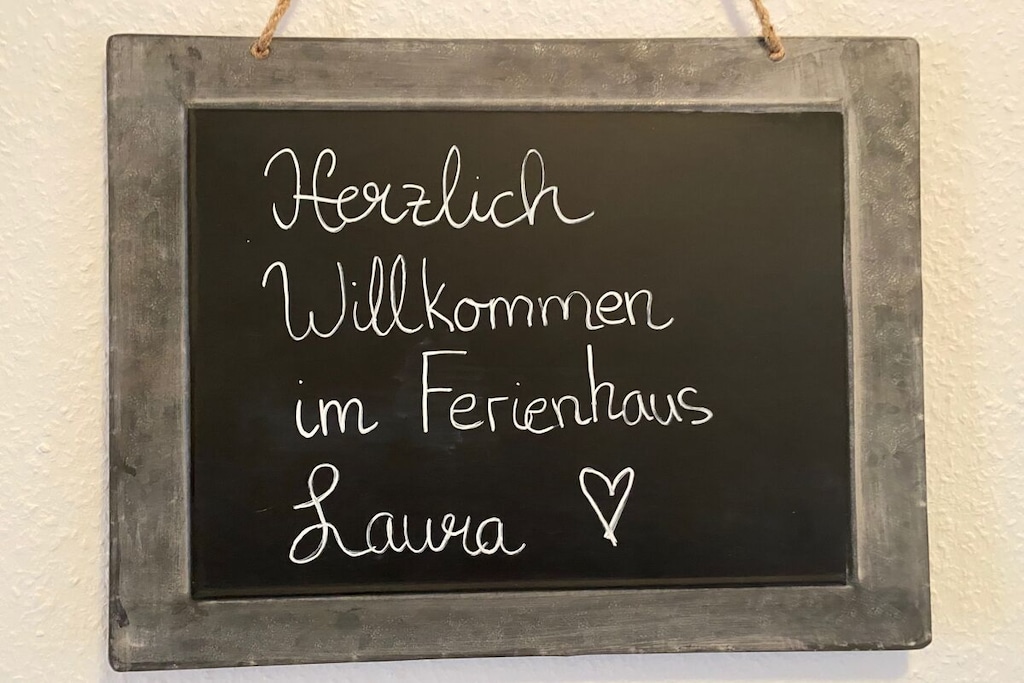 Herzlich
Willkommen
im Ferienhaus
Laura ♡